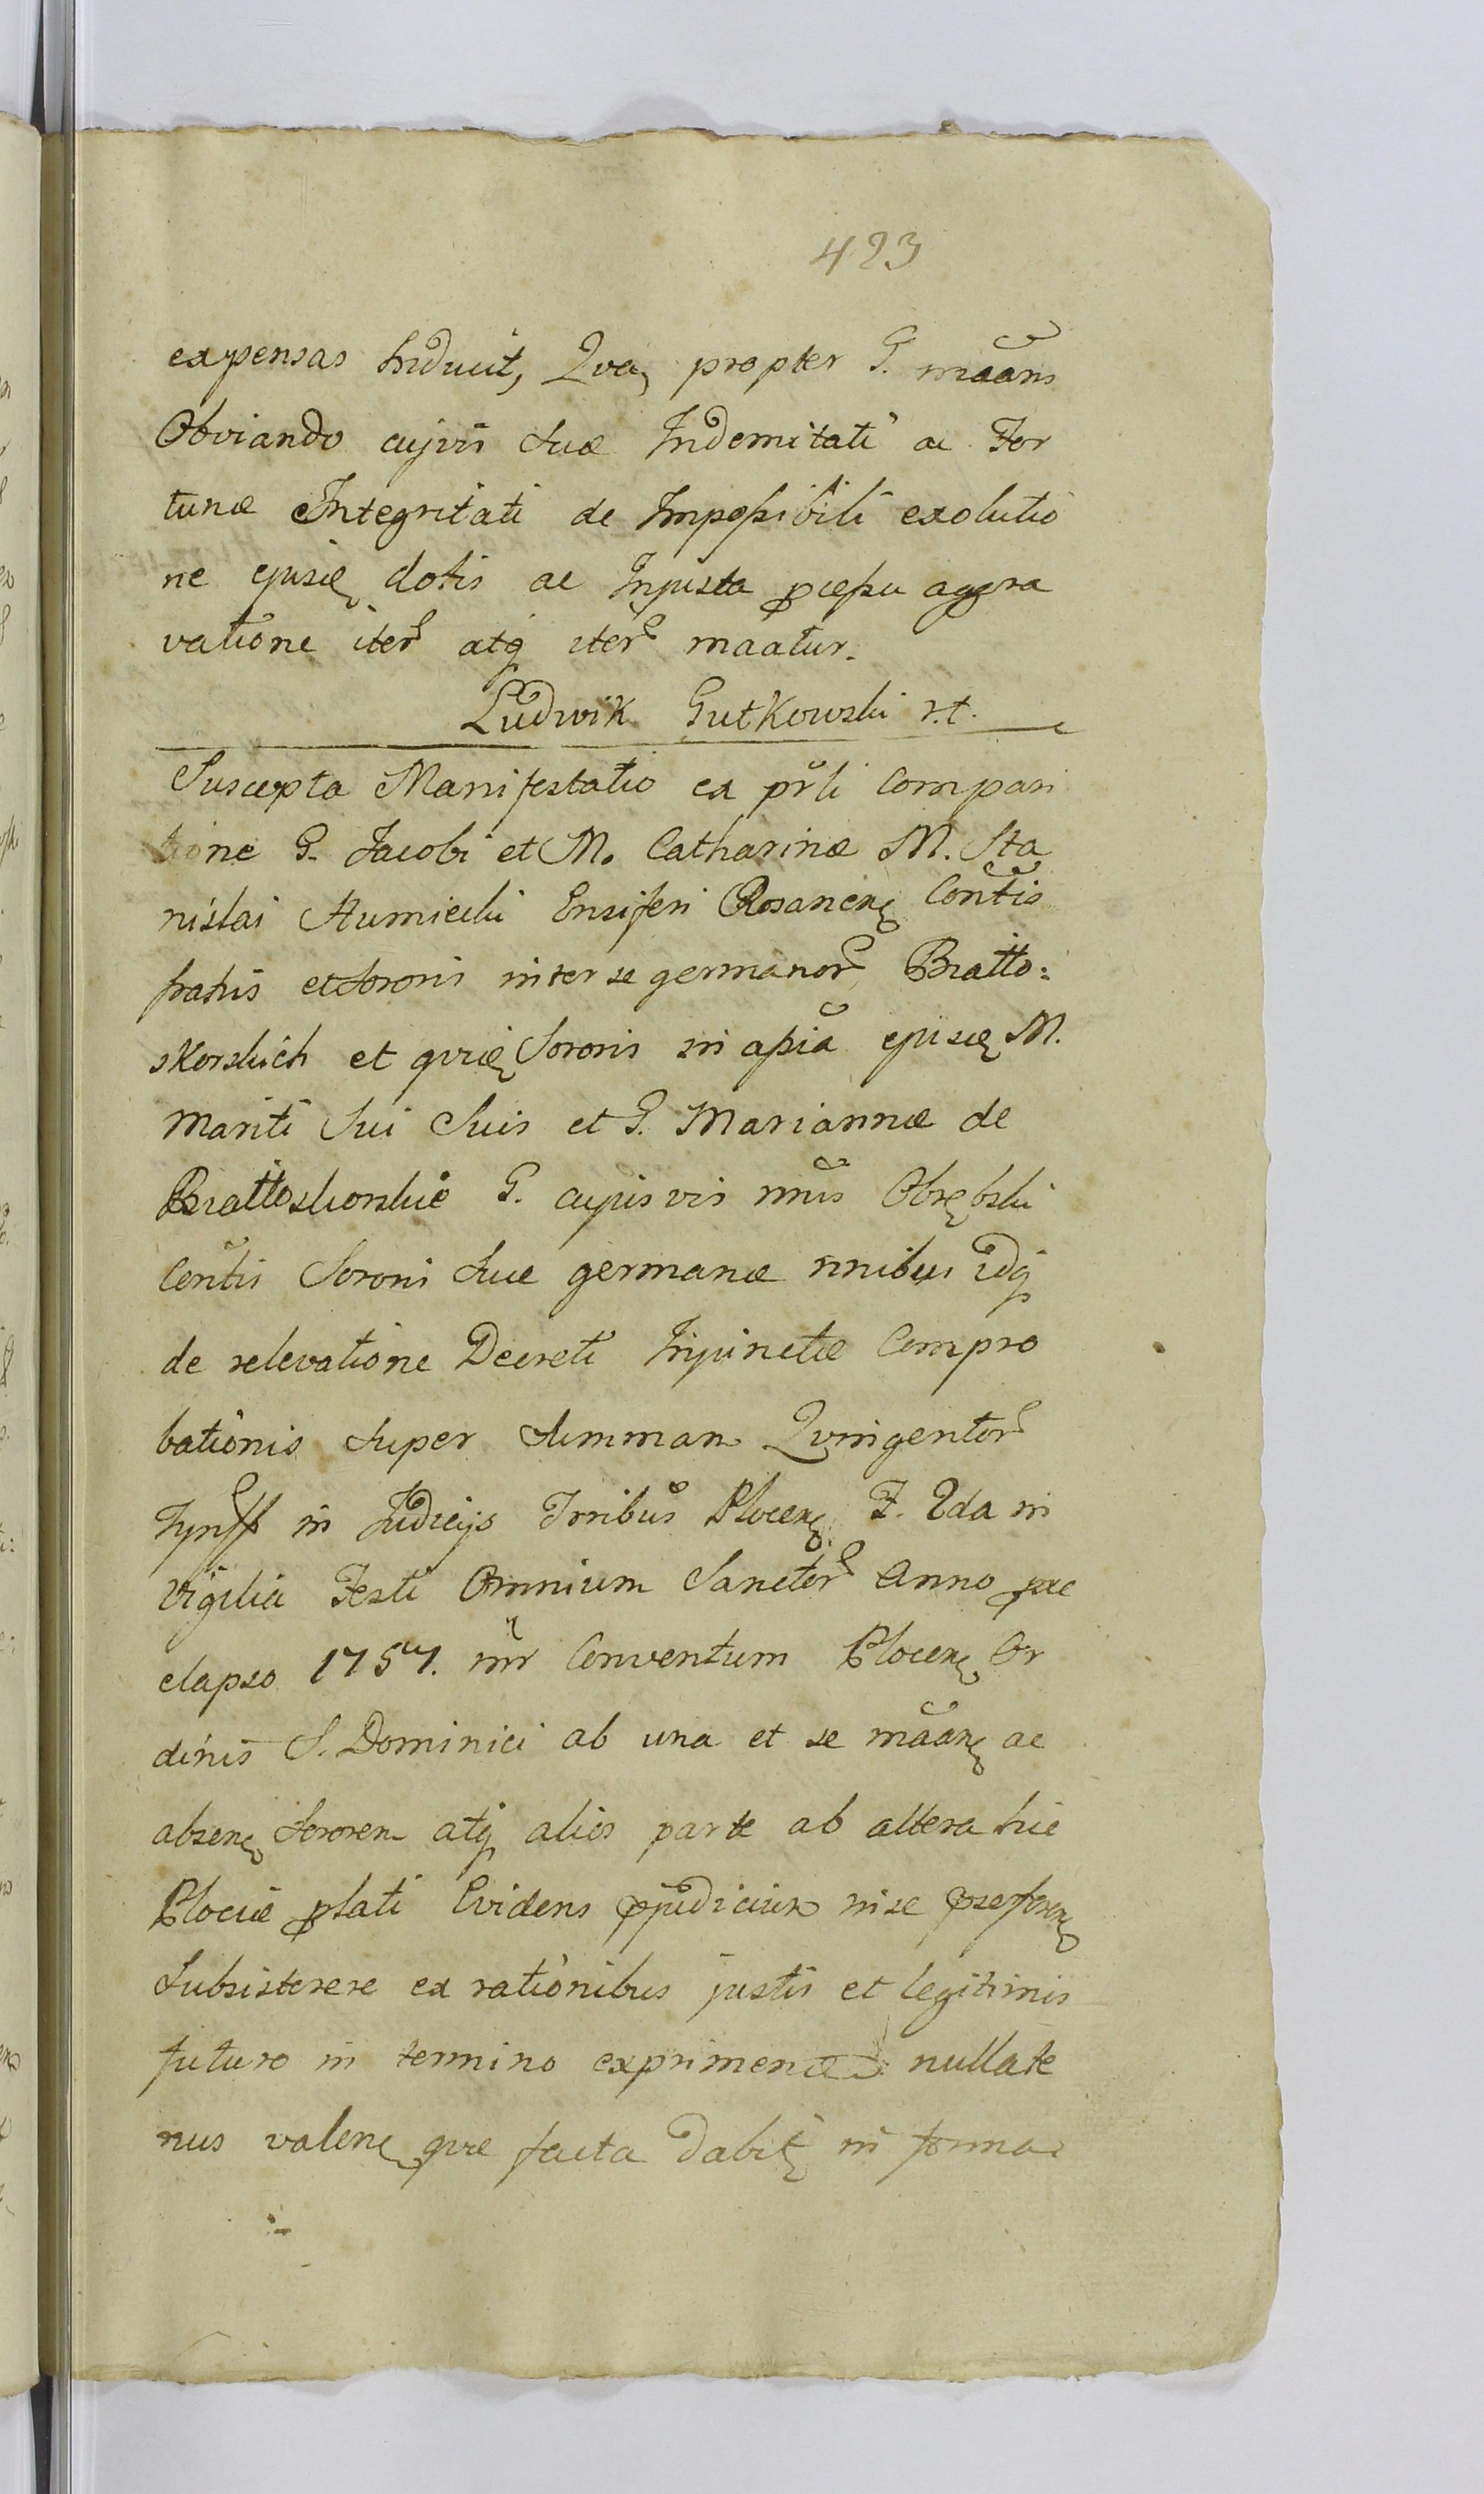 423
expensas Inducit, Qva propter G. maans
Obviando cujvis suæ Indemitati ac For
tunæ Integritati de Impossibili exolutio
ne ejusd dotis ac Injusta processu aggra
vatione iter atq iter maatur.
Ludwik Gutkowski r.t.
Suscepta Manifestatio ex prli Compari
tione G. Jacobi et M. Catharinæ M. Sta
nislai Humiecki Ensiferi Rosanens Contis
fratris et sororis inter se germanor Bratto:
skorskich et qvidem Sororis in assia ejusd M.
Mariti Sui Suis et G. Mariannæ de
Brattoskorskie G. cujusvis nnis Obrębski
Contis Soroni suæ germanæ nnibus idq
de relevatione Decreti Injunctæ Compro
bationis super summam Qvingentor
Tynff in Judicijs Trribus Plocens F. 2da in
Vigilia Festi Omnium Sanctor Anno præ
elapso 1757. intr Conventum Plocens Or
dinis S. Dominici ab una et se maans ac
absens sororem atq alios parte ab altera hic
Plociæ plati Evidens pjudicium in se præferens
subsisterere ex rationibus justis et legitimis
futuro in termino exprimend nullate
nus valens qvæ facta dabit in forma